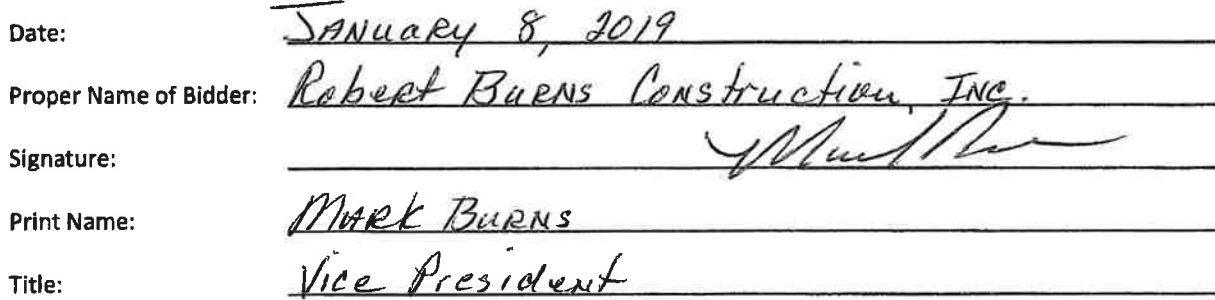 Date: January 8, 2019
Proper Name of Bidder: Robert Burns Construction, Inc.
Signature:
Print Name: Mark Burns
Title: Vice President